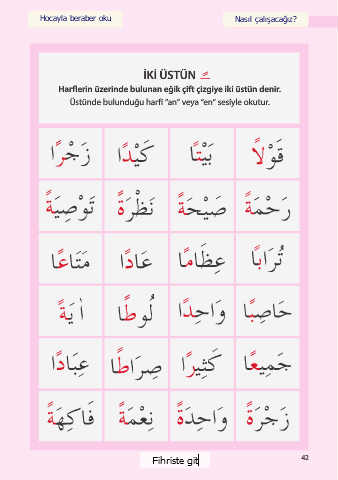 Hocayla beraber oku
Nasıl çalışacağız?
İKİ ÜSTÜN ـً
Harflerin üzerinde bulunan eğik çift çizgiye iki üstün denir.
Üstünde bulunduğu harfi "an" veya "en" sesiyle okutur.
قَوْلًا بَيْتًا كَيْدًا زَجْرًا
رَحْمَةً صَيْحَةً نَظْرَةً تَوْصِيَةً
تُرَابًا عِظَامًا عَادًا مَتَاعًا
حَاصِبًا وَاحِدًا لُوطًا اٰيَةً
جَمِيعًا كَثِيرًا صِرَاطًا عِبَادًا
زَجْرَةً وَاحِدَةً نِعْمَةً فَاكِهَةً
Fihriste git
42